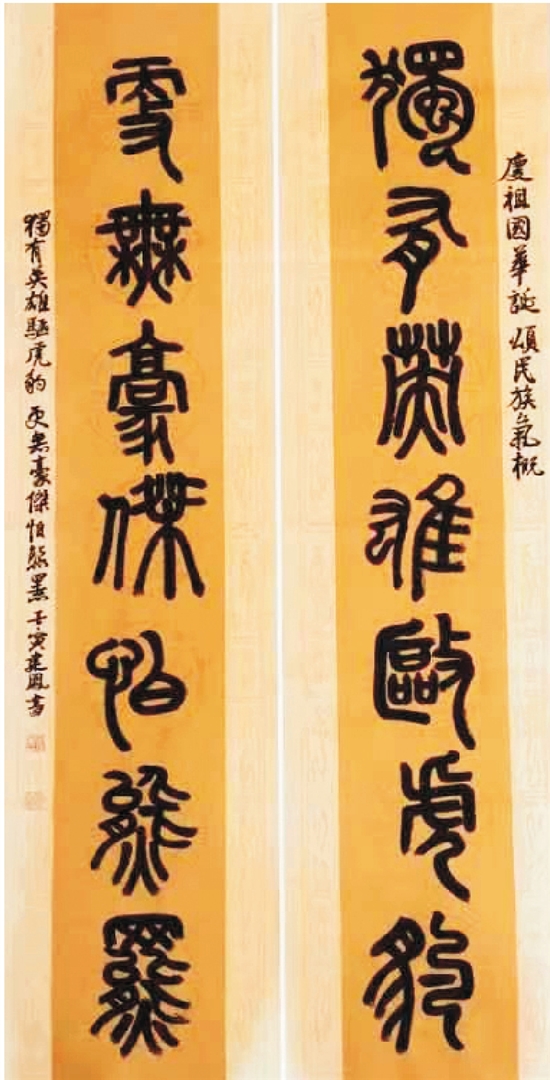 慶祖國華誕 頌民族氣概
獨有英雄敺虎豹
更無豪傑怕熊羆
獨有英雄驅虎豹 更無豪傑怕熊羆 壬寅建鳳書